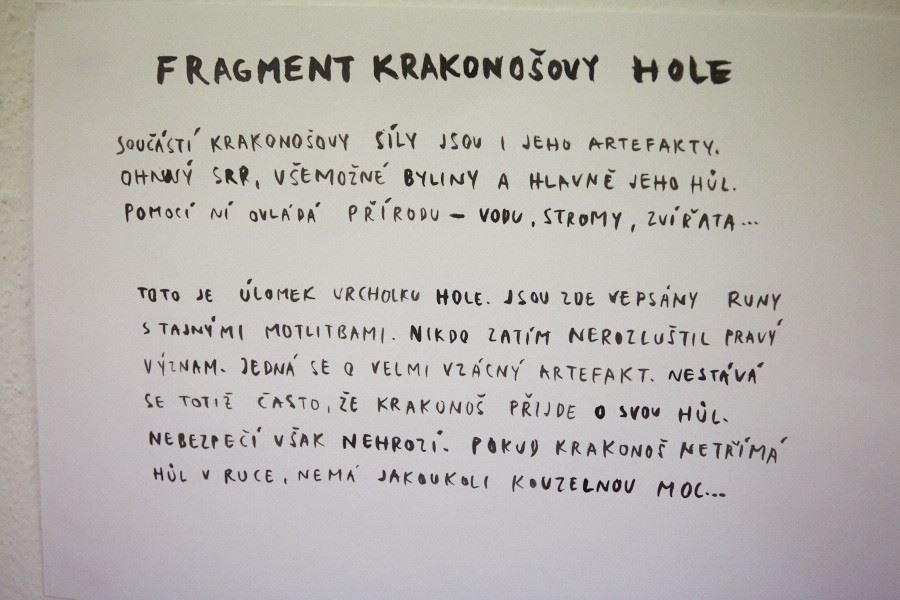 FRAGMENT KRAKONOŠOVY HOLE
SOUČÁSTÍ KRAKONOŠOVY SÍLY JSOU I JEHO ARTEFAKTY.
OHNIVÝ SRP, VŠEMOŽNÉ BYLINY A HLAVNĚ JEHO HŮL.
POMOCÍ NÍ OVLÁDÁ PŘÍRODU – VODU, STROMY, ZVÍŘATA...
TOTO JE ÚLOMEK VRCHOLKU HOLE. JSOU ZDE VEPSÁNY RUNY
S TAJNÝMI MOTLITBAMI. NIKDO ZATÍM NEROZLUŠTIL PRAVÝ
VÝZNAM. JEDNÁ SE O VELMI VZÁCNÝ ARTEFAKT. NESTÁVÁ
SE TOTIŽ ČASTO, ŽE KRAKONOŠ PŘIJDE O SVOU HŮL.
NEBEZPEČÍ VŠAK NEHROZÍ. POKUD KRAKONOŠ NETŘÍMÁ
HŮL V RUCE, NEMÁ JAKOUKOLI KOUZELNOU MOC...